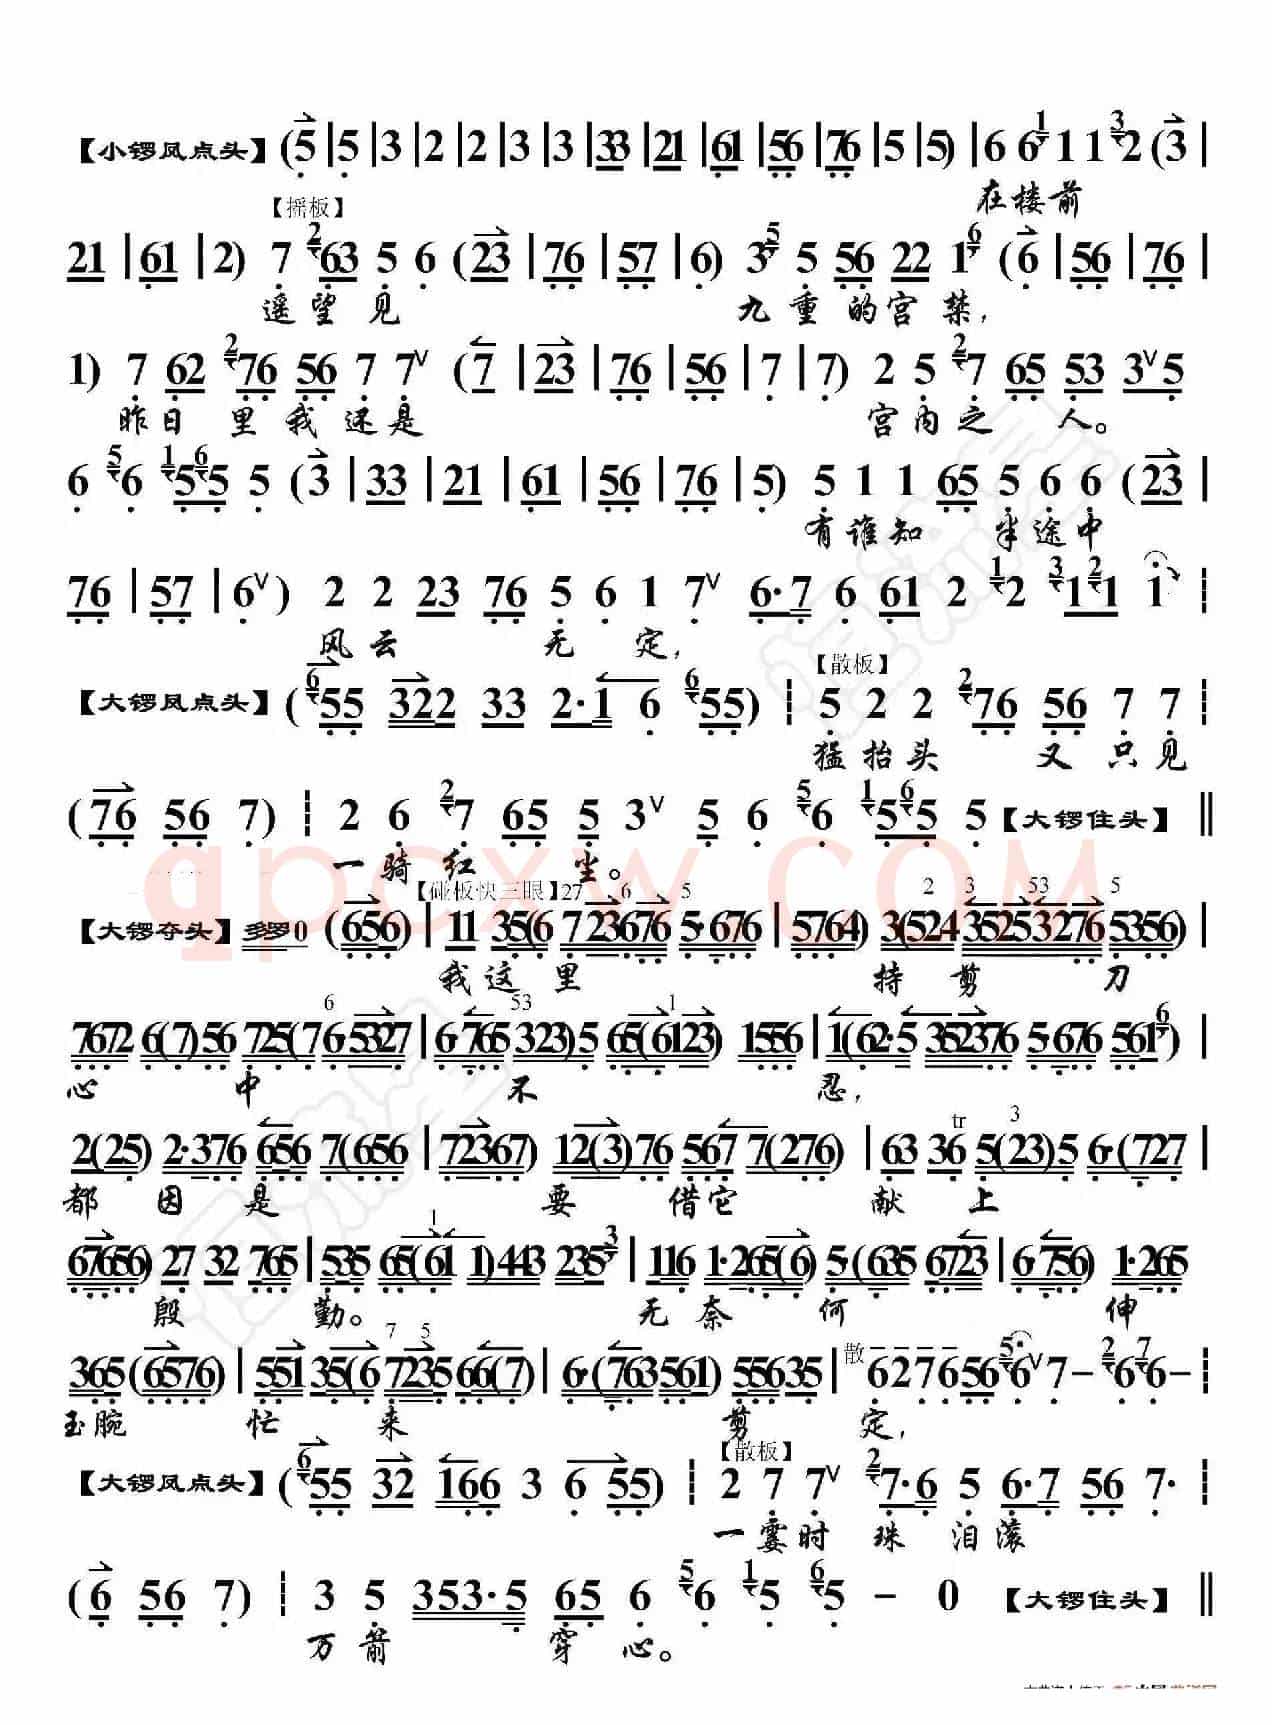 【小锣凤点头】 (5|5|3|2|2|3|3|33|21|61|56|76|5|5) 6 6 1 1 1 3 2 (3|
在楼前
【摇板】
21|61|2) 7 2 63 5 6 (23|76|57|6) 3 5 5 56 22 1 6 (6|56|76|
遥望见 九重的宫禁，
1) 7 62 2 76 56 7 7 ∨ (7|23|76|56|7|7) 2 5 2 7 65 53 3 ∨ 5
昨日里我还是 宫内之人。
6 5 6 1 5 6 5 5 (3|33|21|61|56|76|5) 5 1 1 65 5 6 6 (23|
有谁知 半途中
76|57|6 ∨) 2 2 23 76 5 6 1 7 ∨ 6·7 6 61 2 1 2 3 1 2 1 1
风云无定，
【散板】
【大锣凤点头】 (6 55 322 33 2·1 6 6 55) 5 2 2 2 76 56 7 7
猛抬头又只见
(76 56 7) 2 6 2 7 65 5 3 ∨ 5 6 5 6 1 5 6 5 5 【大锣住头】
一骑红尘。
【碰板快三眼】 27 6 5 2 3 53 5
【大锣夺头】 多罗0 (656)|11 35(6 7 23676 5·676|5764) 3(524 352532765356)|
我这里 持剪刀
6 53 1
7672 6(7)56 725(76·5327|6·765 323)5 65(6123) 1556|1(62·5 352376 5·676 561 6)|
心中不忍，
tr 3
2(25) 2·376 656 7(656|72367) 12(3)76 567 7(276)|63 36 5(23)5 6·(727|
都因是要借它献上
1
67656) 27 32 765|535 65(61 1)443 235 3|116 1·265(6) 5(635 6723|6·756) 1·265
殷勤。 无奈何伸
7 5 散
365(6576)|551 35(6 7235 66(7)|6·(763561) 55635|6276 56 5 6 ∨ 7– 2 6 7 6–
玉腕忙来剪定，
【散板】
【大锣凤点头】 (6 55 32 166 3 6 55) 2 7 7 ∨ 2 7·6 5 6·7 56 7·
一霎时珠泪滚
(6 56 7) 3 5 353·5 65 6 5 6 1 5 6 5 – 0 【大锣住头】
万箭穿心。
qpcxw.COM